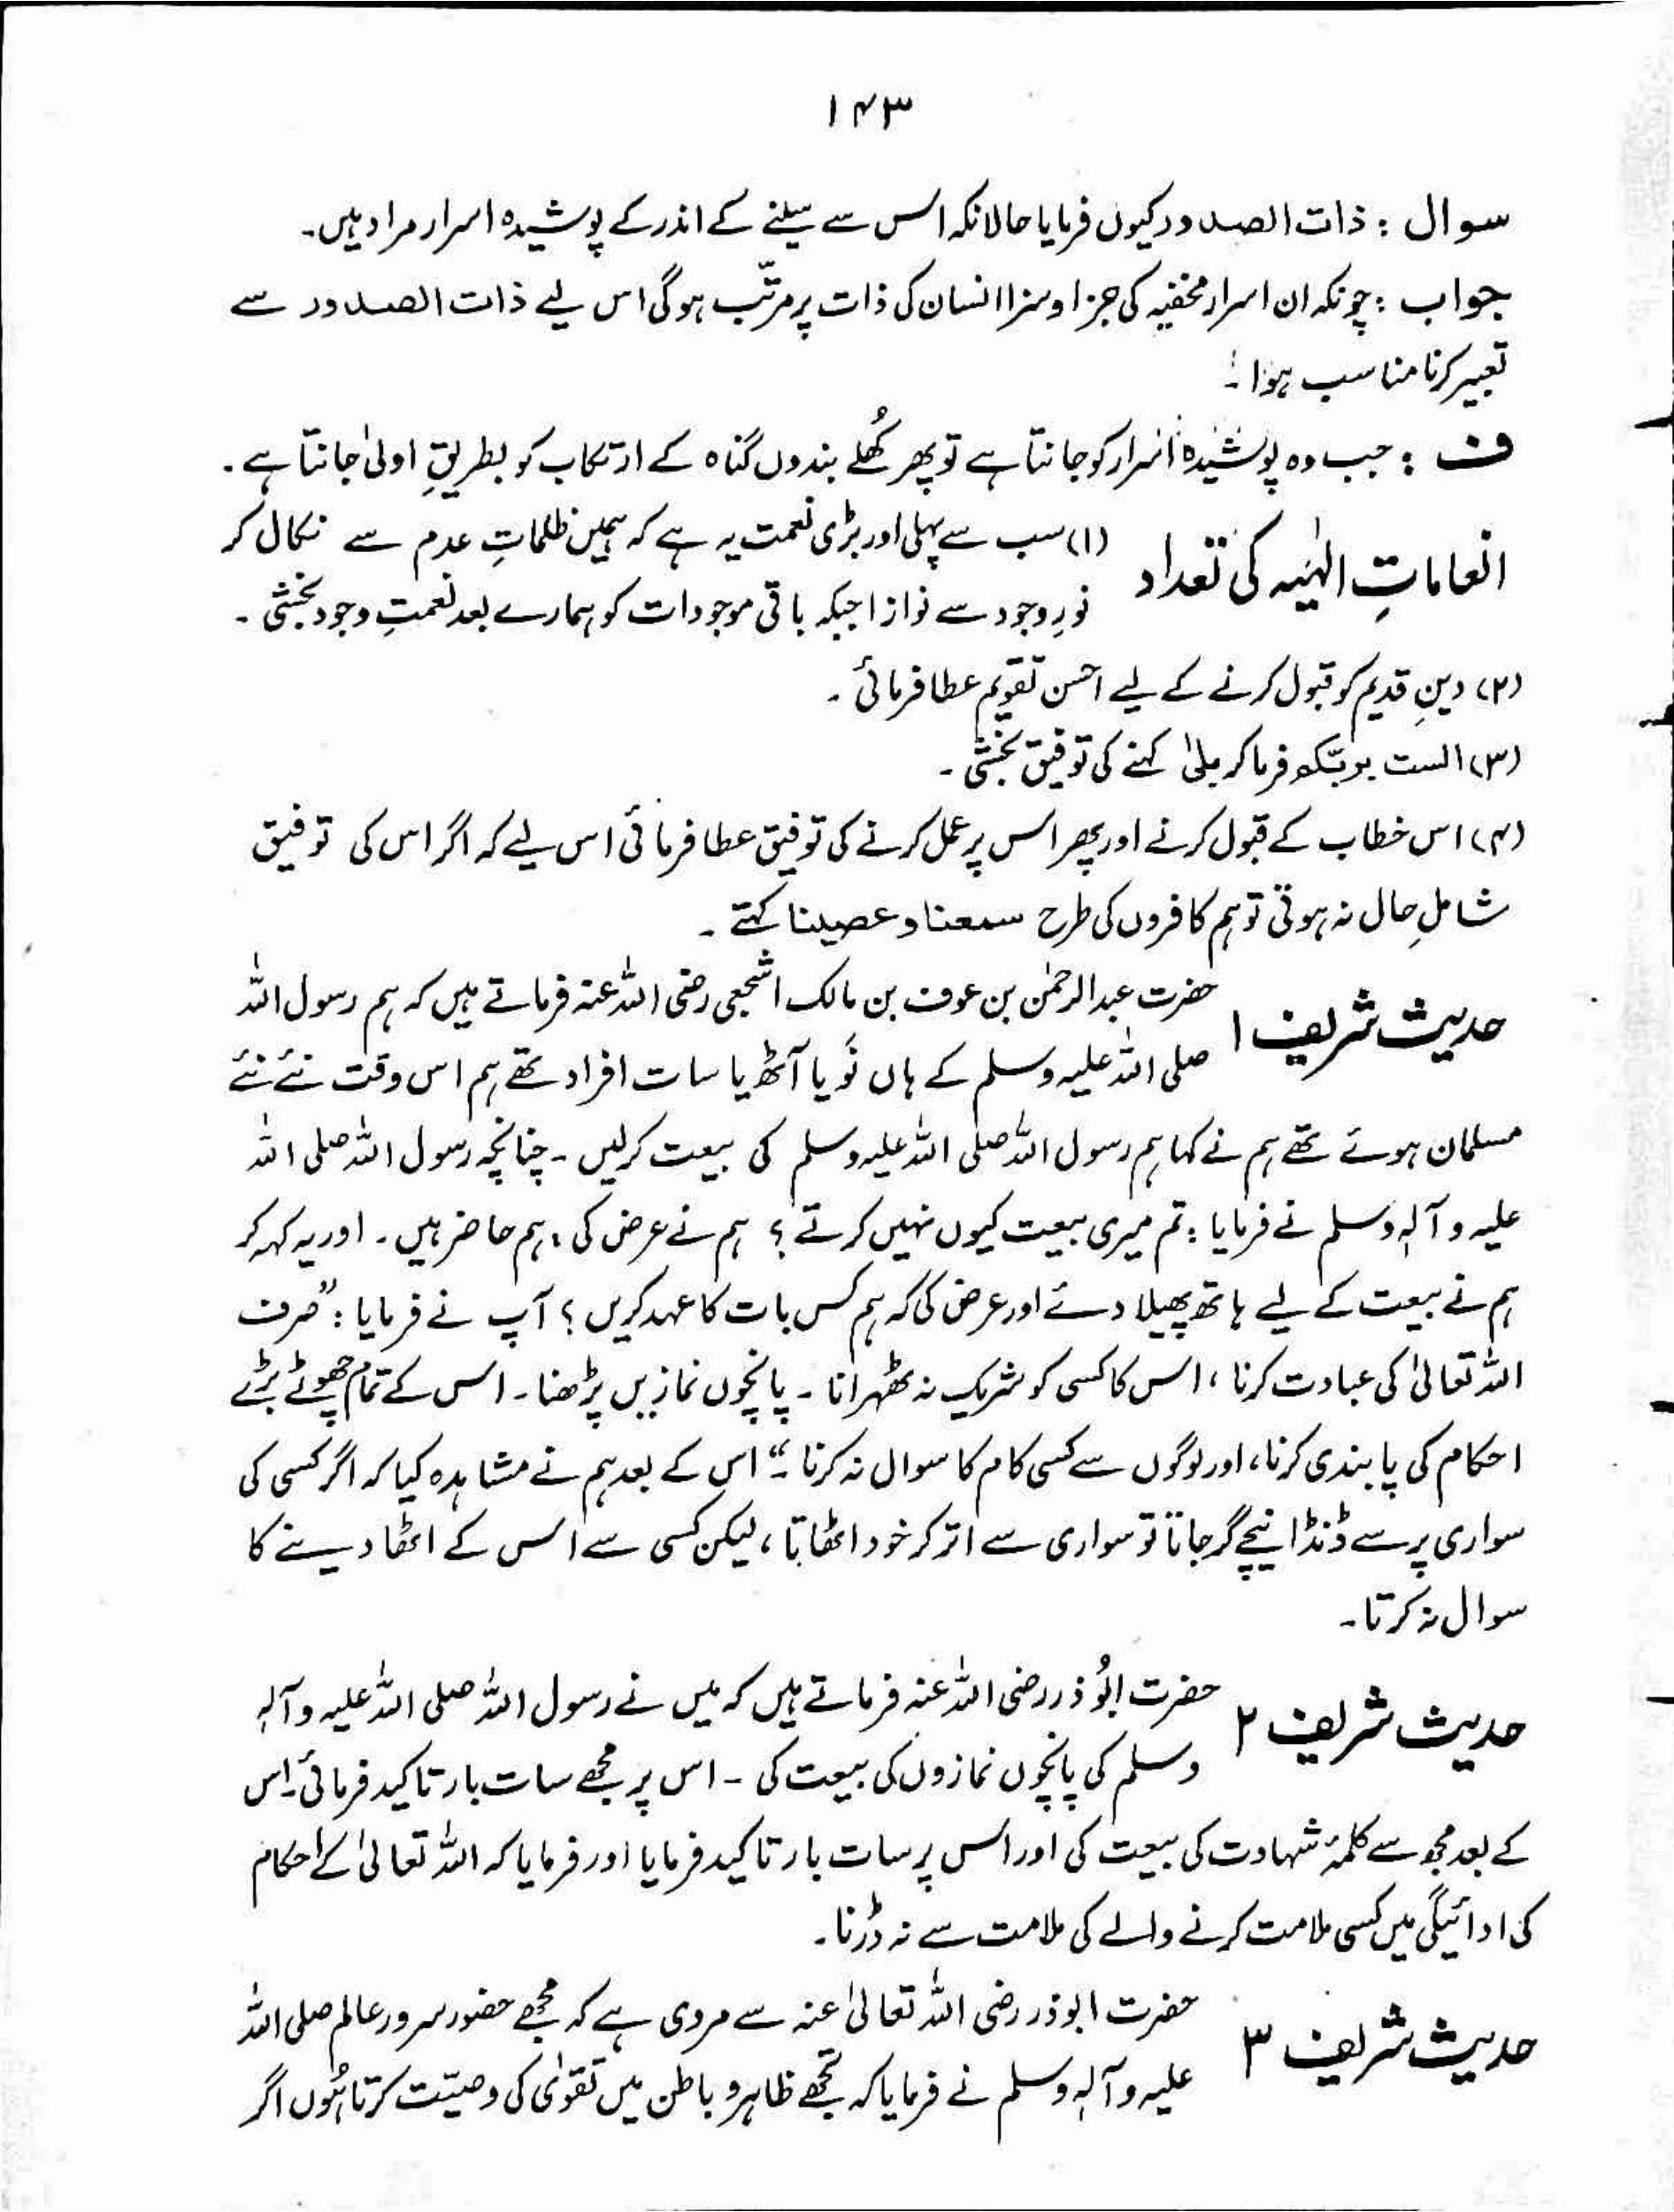 ۱۴۳
سوال : ذات الصدور کیوں فرمایا حالانکہ اس سے سینے کے اندر کے پوشیدہ اسرار مراد ہیں۔
جواب : چونکہ ان اسرار مخفیہ کی جزا و سزا انسان کی ذات پر مرتّب ہوگی اس لیے ذات الصدور سے
تعبیر کرنا مناسب ہوا۔
ف : جب وہ پوشیدہ اسرار کو جانتا ہے تو پھر کُھلے بندوں گناہ کے ارتکاب کو بطریقِ اولیٰ جانتا ہے۔
انعاماتِ الٰہیہ کی تعداد
(۱) سب سے پہلی اور بڑی نعمت یہ ہے کہ ہمیں ظلماتِ عدم سے نکال کر
نورِ وجود سے نوازا جبکہ باقی موجودات کو ہمارے بعد نعمتِ وجود بخشی۔
(۲) دینِ قدیم کو قبول کرنے کے لیے احسن تقویم عطا فرمائی۔
(۳) الست بربّکم فرما کر بلیٰ کہنے کی توفیق بخشی۔
(۴) اس خطاب کے قبول کرنے اور پھر اس پر عمل کرنے کی توفیق عطا فرمائی اس لیے کہ اگر اس کی توفیق
شاملِ حال نہ ہوتی تو ہم کافروں کی طرح سمعنا و عصینا کہتے۔
حدیث شریف ۱
حضرت عبدالرحمٰن بن عوف بن مالک اشجعی رضی اللہ عنہ فرماتے ہیں کہ ہم رسول اللہ
صلی اللہ علیہ وسلم کے ہاں نَو یا آٹھ یا سات افراد تھے ہم اس وقت نئے نئے
مسلمان ہوئے تھے ہم نے کہا ہم رسول اللہ صلی اللہ علیہ وسلم کی بیعت کرلیں۔ چنانچہ رسول اللہ صلی اللہ
علیہ و آلہٖ وسلم نے فرمایا : تم میری بیعت کیوں نہیں کرتے ؟ ہم نے عرض کی ، ہم حاضر ہیں۔ اور یہ کہہ کر
ہم نے بیعت کے لیے ہاتھ پھیلا دئے اور عرض کی کہ ہم کس بات کا عہد کریں ؟ آپ نے فرمایا : "صرف
اللہ تعالیٰ کی عبادت کرنا ، اس کا کسی کو شریک نہ ٹھہرانا۔ پانچوں نمازیں پڑھنا۔ اس کے تمام چھوٹے بڑے
احکام کی پابندی کرنا، اور لوگوں سے کسی کام کا سوال نہ کرنا۔" اس کے بعد ہم نے مشاہدہ کیا کہ اگر کسی کی
سواری پر سے ڈنڈا نیچے گر جاتا تو سواری سے اتر کر خود اٹھاتا ، لیکن کسی سے اس کے اٹھا دینے کا
سوال نہ کرتا۔
حدیث شریف ۲
حضرت ابُو ذر رضی اللہ عنہ فرماتے ہیں کہ میں نے رسول اللہ صلی اللہ علیہ و آلہٖ
وسلم کی پانچوں نمازوں کی بیعت کی۔ اس پر مجھے سات بار تاکید فرمائی۔ اس
کے بعد مجھ سے کلمۂ شہادت کی بیعت کی اور اس پر سات بار تاکید فرمایا اور فرمایا کہ اللہ تعالیٰ کے احکام
کی ادائیگی میں کسی ملامت کرنے والے کی ملامت سے نہ ڈرنا۔
حدیث شریف ۳
حضرت ابوذر رضی اللہ تعالیٰ عنہ سے مروی ہے کہ مجھے حضور سرور عالم صلی اللہ
علیہ و آلہٖ وسلم نے فرمایا کہ تجھے ظاہر و باطن میں تقوٰی کی وصیّت کرتا ہُوں اگر